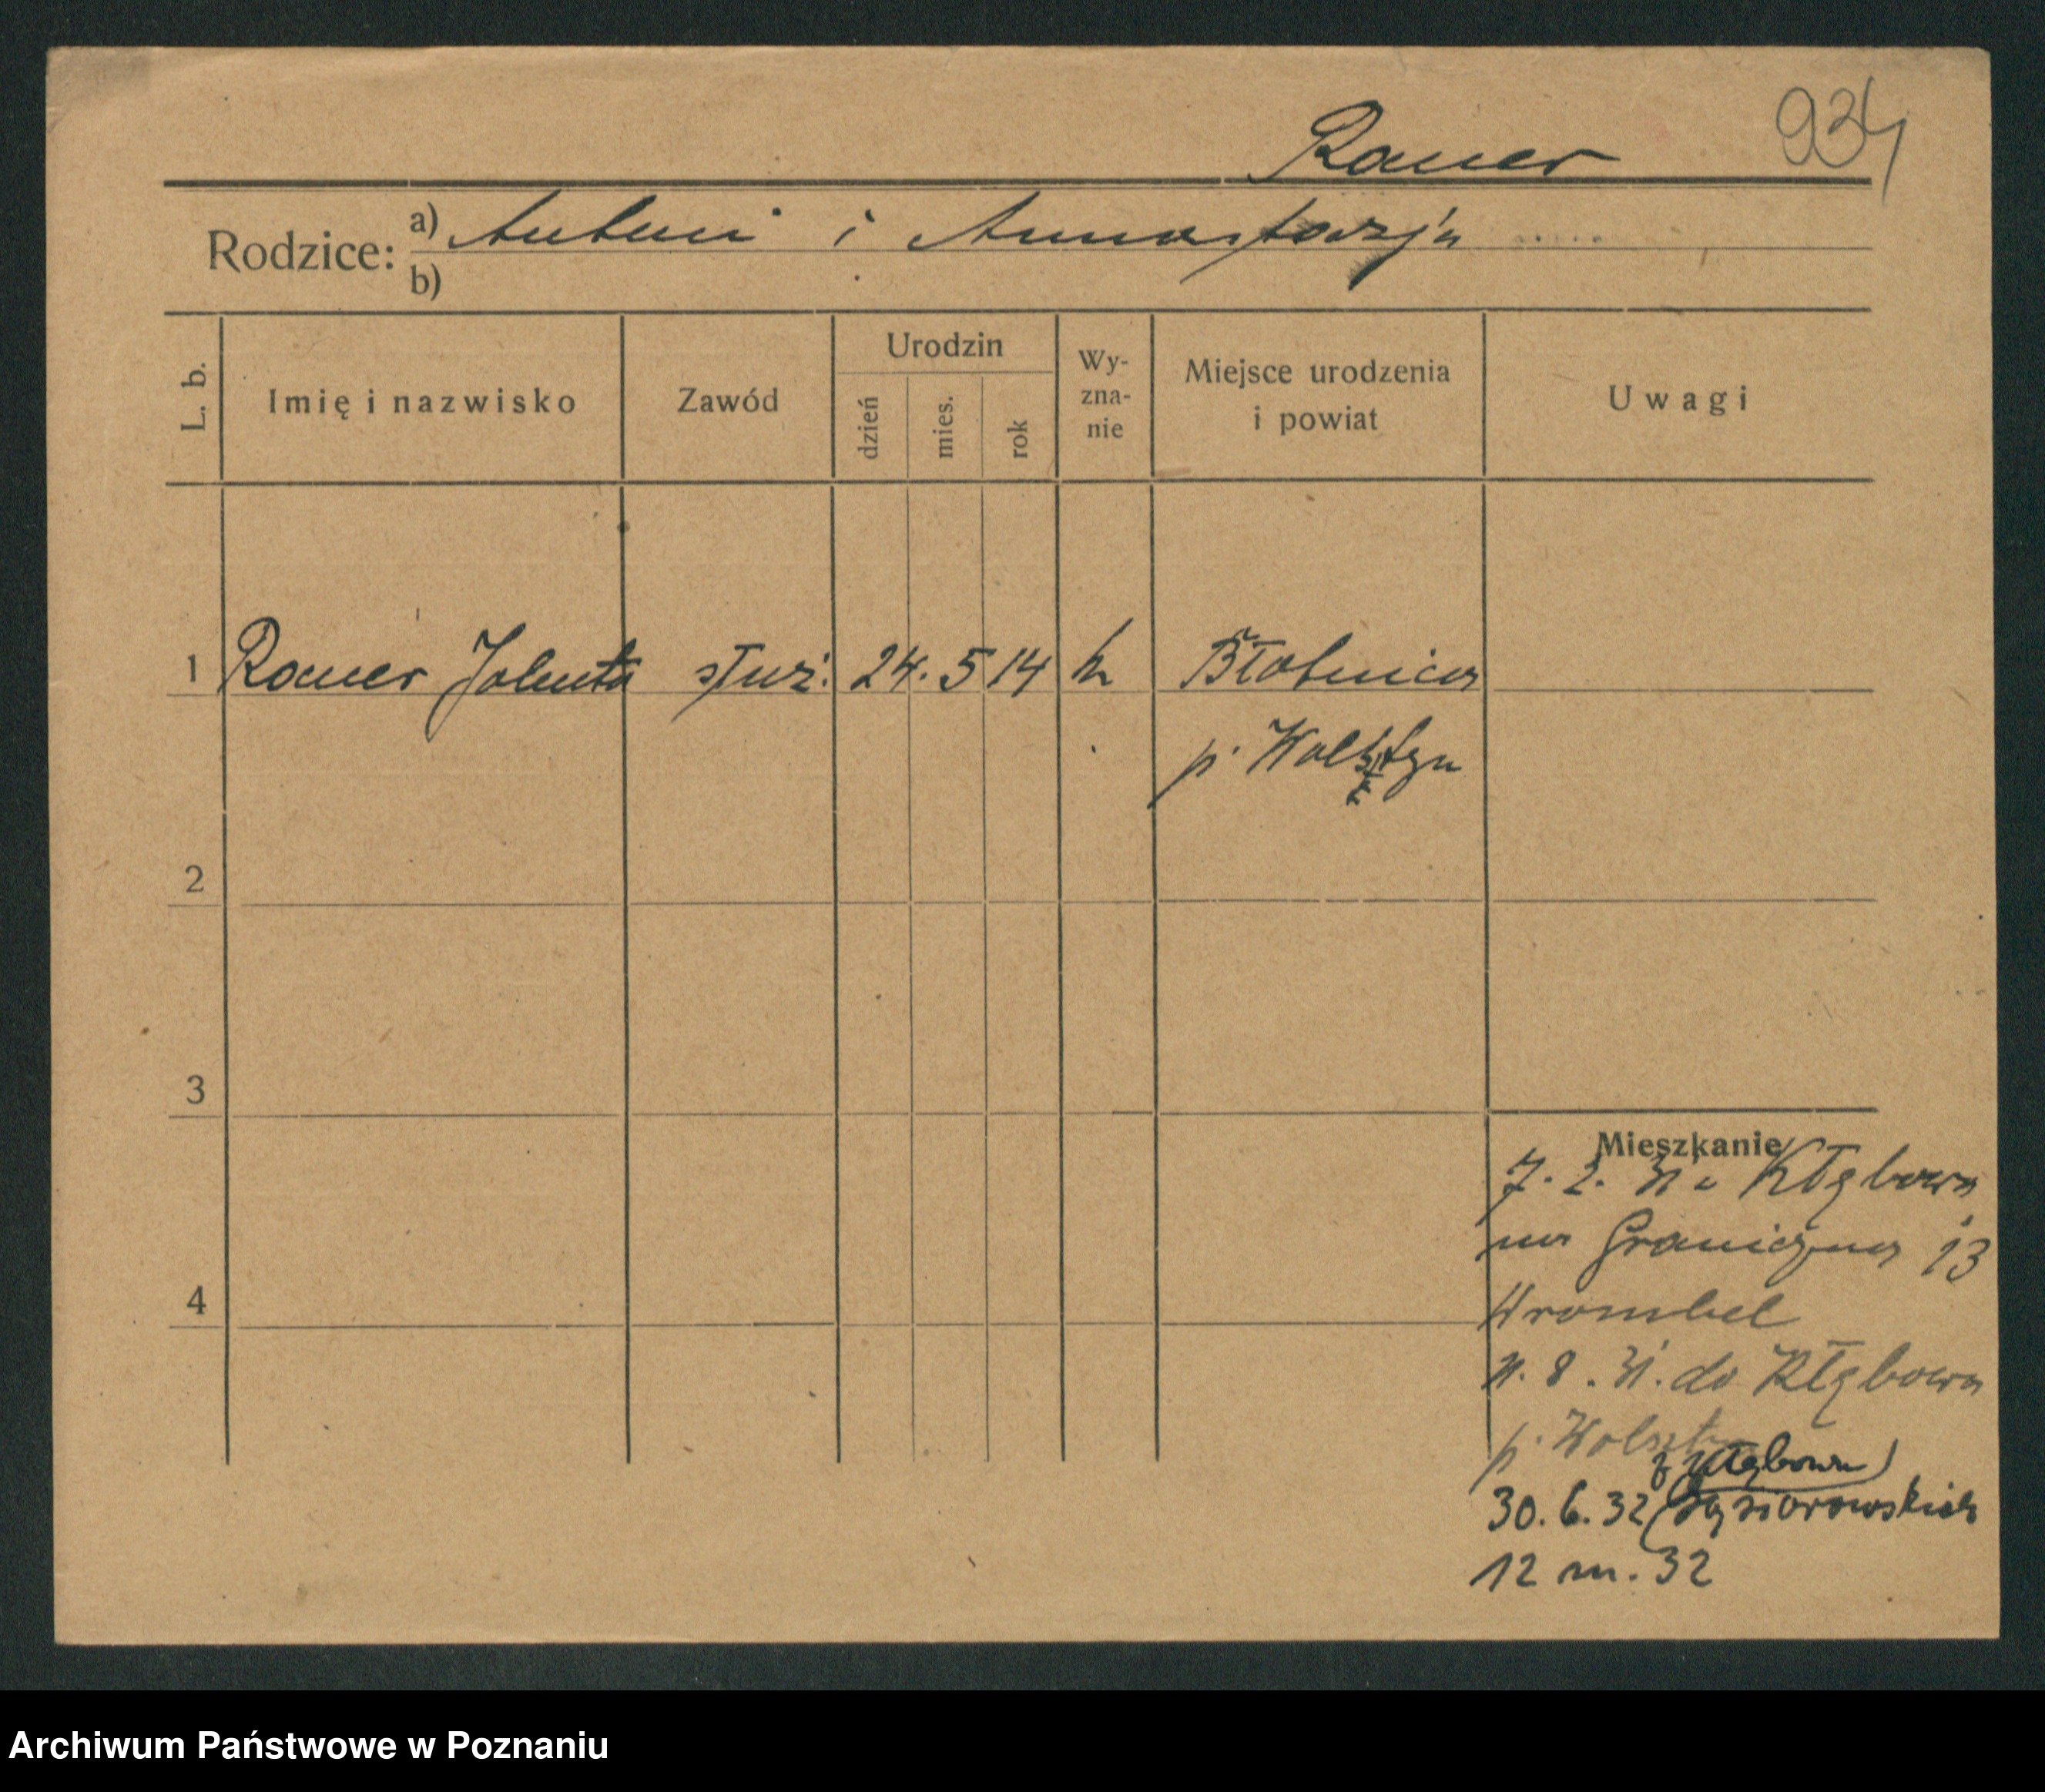 934
Rauer
Rodzice: a) Antoni i Annastazja
b)
L. b.
Imię i nazwisko
Zawód
Urodzin
dzień
mies.
rok
Wy-
zna-
nie
Miejsce urodzenia
i powiat
Uwagi
1 Rauer Jolenta służ. 24. 5 14 k Błotnica
p. Wolsztyn
2
3
4
Mieszkanie
7. 2. 31 z Kłębowa
na Graniczna 13
Wrombel
8. 31. do Kłębowa
p. Wolszt
z Kłębowa)
30. 6. 32 (Gąsiorowskich
12 m. 32
Archiwum Państwowe w Poznaniu